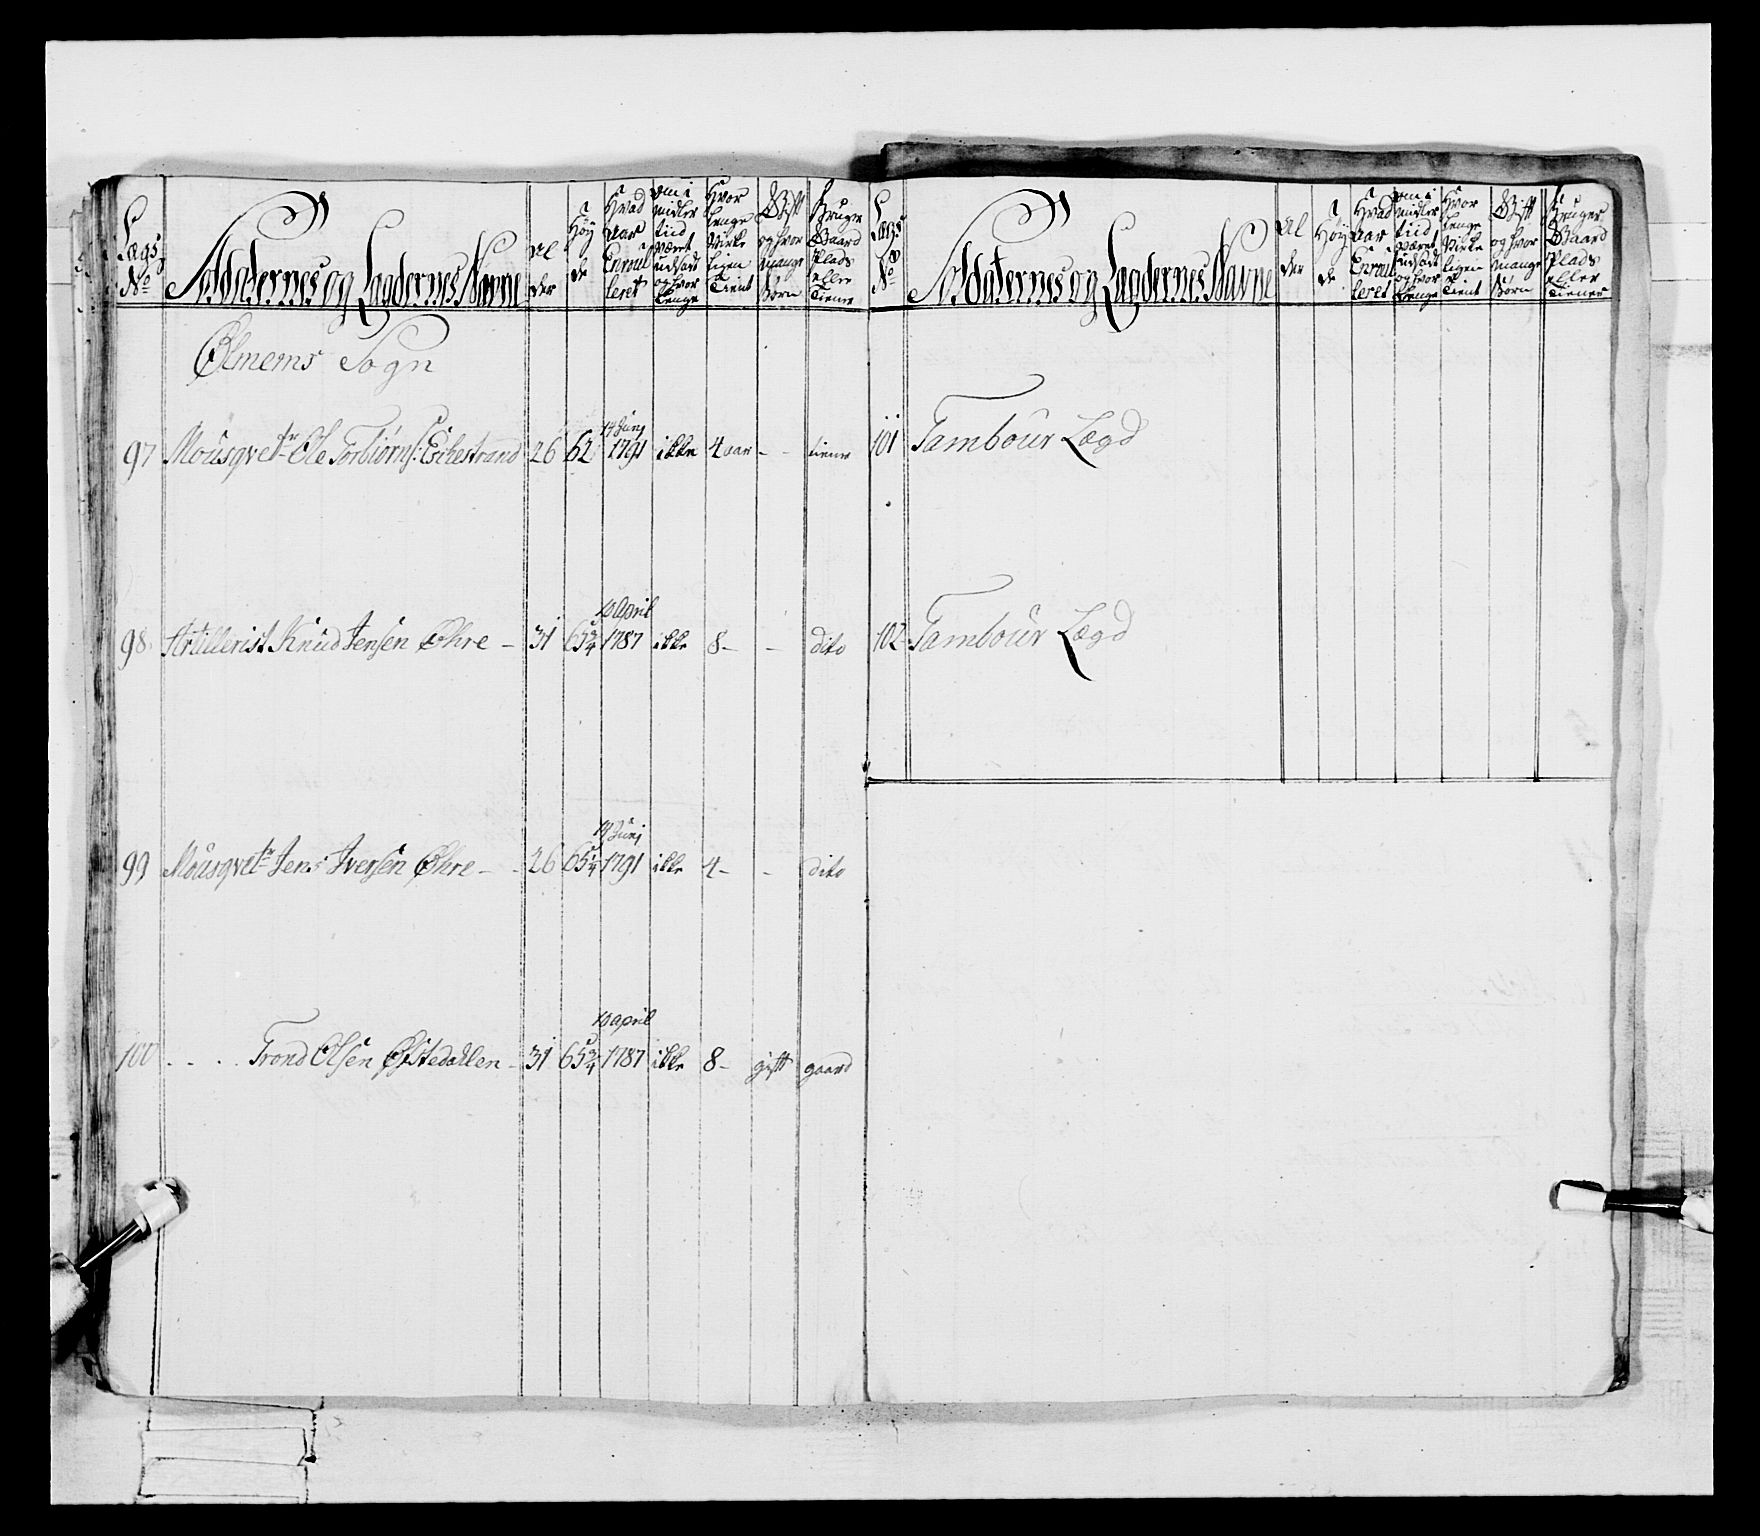 Lægs No
Soldaternes og Lægdernes Navne
Al der
Høy de
Hvad Aar Enroul leret
om i midler tiid været udsadt og hvor lenge
Hvor lenge Virke ligen Tient
Gift og hvor mange Børn
Bruger Gaard Plads eller Tiener
Ølmems Sogn
97 Mousqvetr Ole Torbiørns: Eikestrand 26 62 14 Junj 1791 ikke 4 aar - - tiener
98 Artillerist Knud Jensen Øhre - 31 65 3/4 10 April 1787 ikke 8 - - dito
99 Mousqvetr Jens Iversen Øhre - - 26 65 1/4 14 Junj 1791 ikke 4 - - dito
100 - - . Trond Olsen Østedahlen - 31 65 3/4 10 april 1787 ikke 8 - gift gaard
Lægs No
Soldaternes og Lægdernes Navne
Al der
Høy de
Hvad Aar Enroul leret
om i midler tiid været udsadt og hvor lenge
Hvor lenge Virke ligen Tient
Gift og hvor mange Børn
Bruger Gaard Plads eller Tiener
101 Tambour Lægd
102 Tambour Lægd